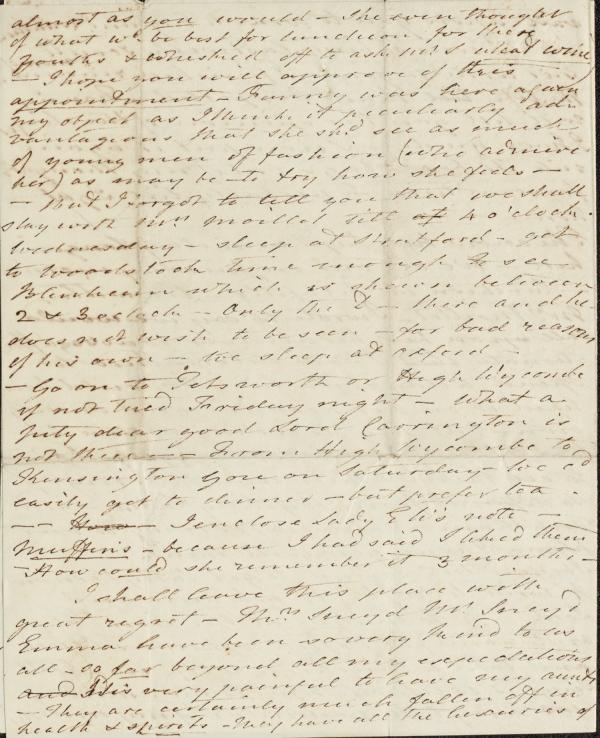 almost as you would – She even thought
of what wd be best for luncheon for these
youths & rushed off to ask Mr S what wine
– I hope you will approve of this
appointment – Fanny was here again
my object as I think it peculiarly ad-
vantageous that she shd see as much
of young men of fashion (who admire
her) as may be – to try how she feels –
– But I forgot to tell you that we shall
stay with Mrs Moilliet till 4 o'clock
Wednesday – sleep at Stratford – get
to Woodstock time enough to see
Blenheim which is shewn between
2 & 3 oclock – Only the D – there and he
does not wish to be seen – for bad reasons
of his own – we sleep at Oxford –
– Go on to Tetsworth or High Wycombe
if not tired Friday night – what a
pity dear good Lord Carrington is
not there – – From High Wycombe to
Kensington Gore on Saturday We cd
easily get to dinner – but prefer tea –
– – I enclose Lady Eli's note –
Muffins – because I had said I liked them
– How could she remember it 3 months –
I shall leave this place with
great regret – Mrs Sneyd Mr Sneyd
Emma have been so very kind to us
all – so far beyond all my expectations
very painful to leave my aunts
– They are certainly much fallen off in
health & spirits – They have all the luxuries of